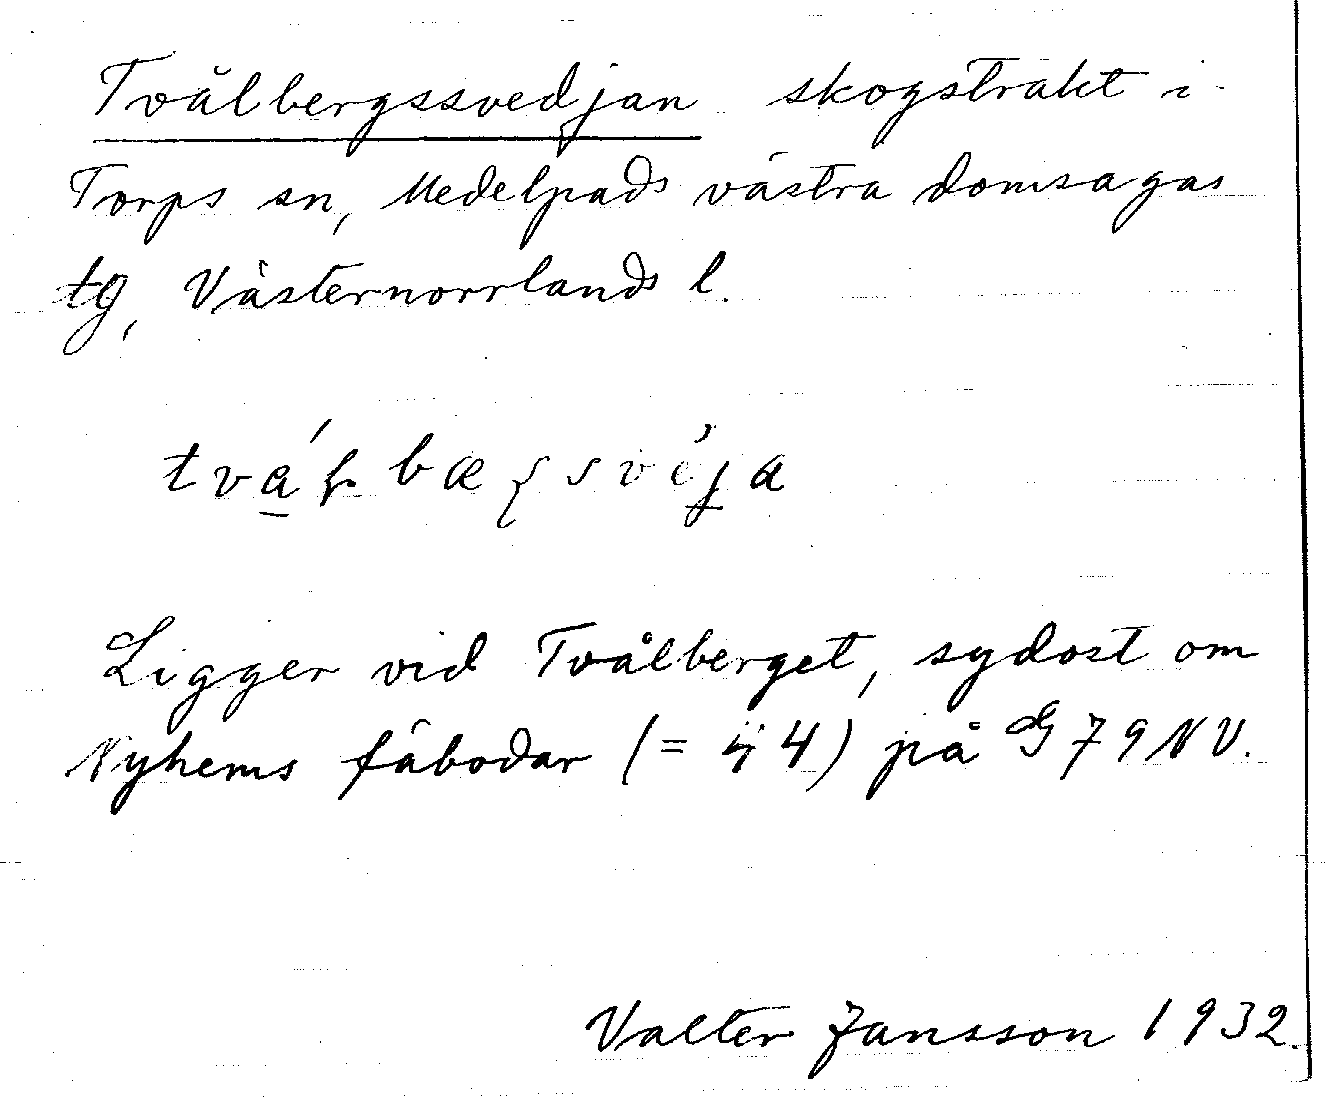 Tvålbergssvedjan skogstrakt i
Torps sn, Medelpads västra domsagas
tg, Västernorrlands l.
Ligger vid Tvålberget, sydost om
Nyhems fäbodar (= ÿ 4) på G 79 NV.
Valter Jansson 1932.